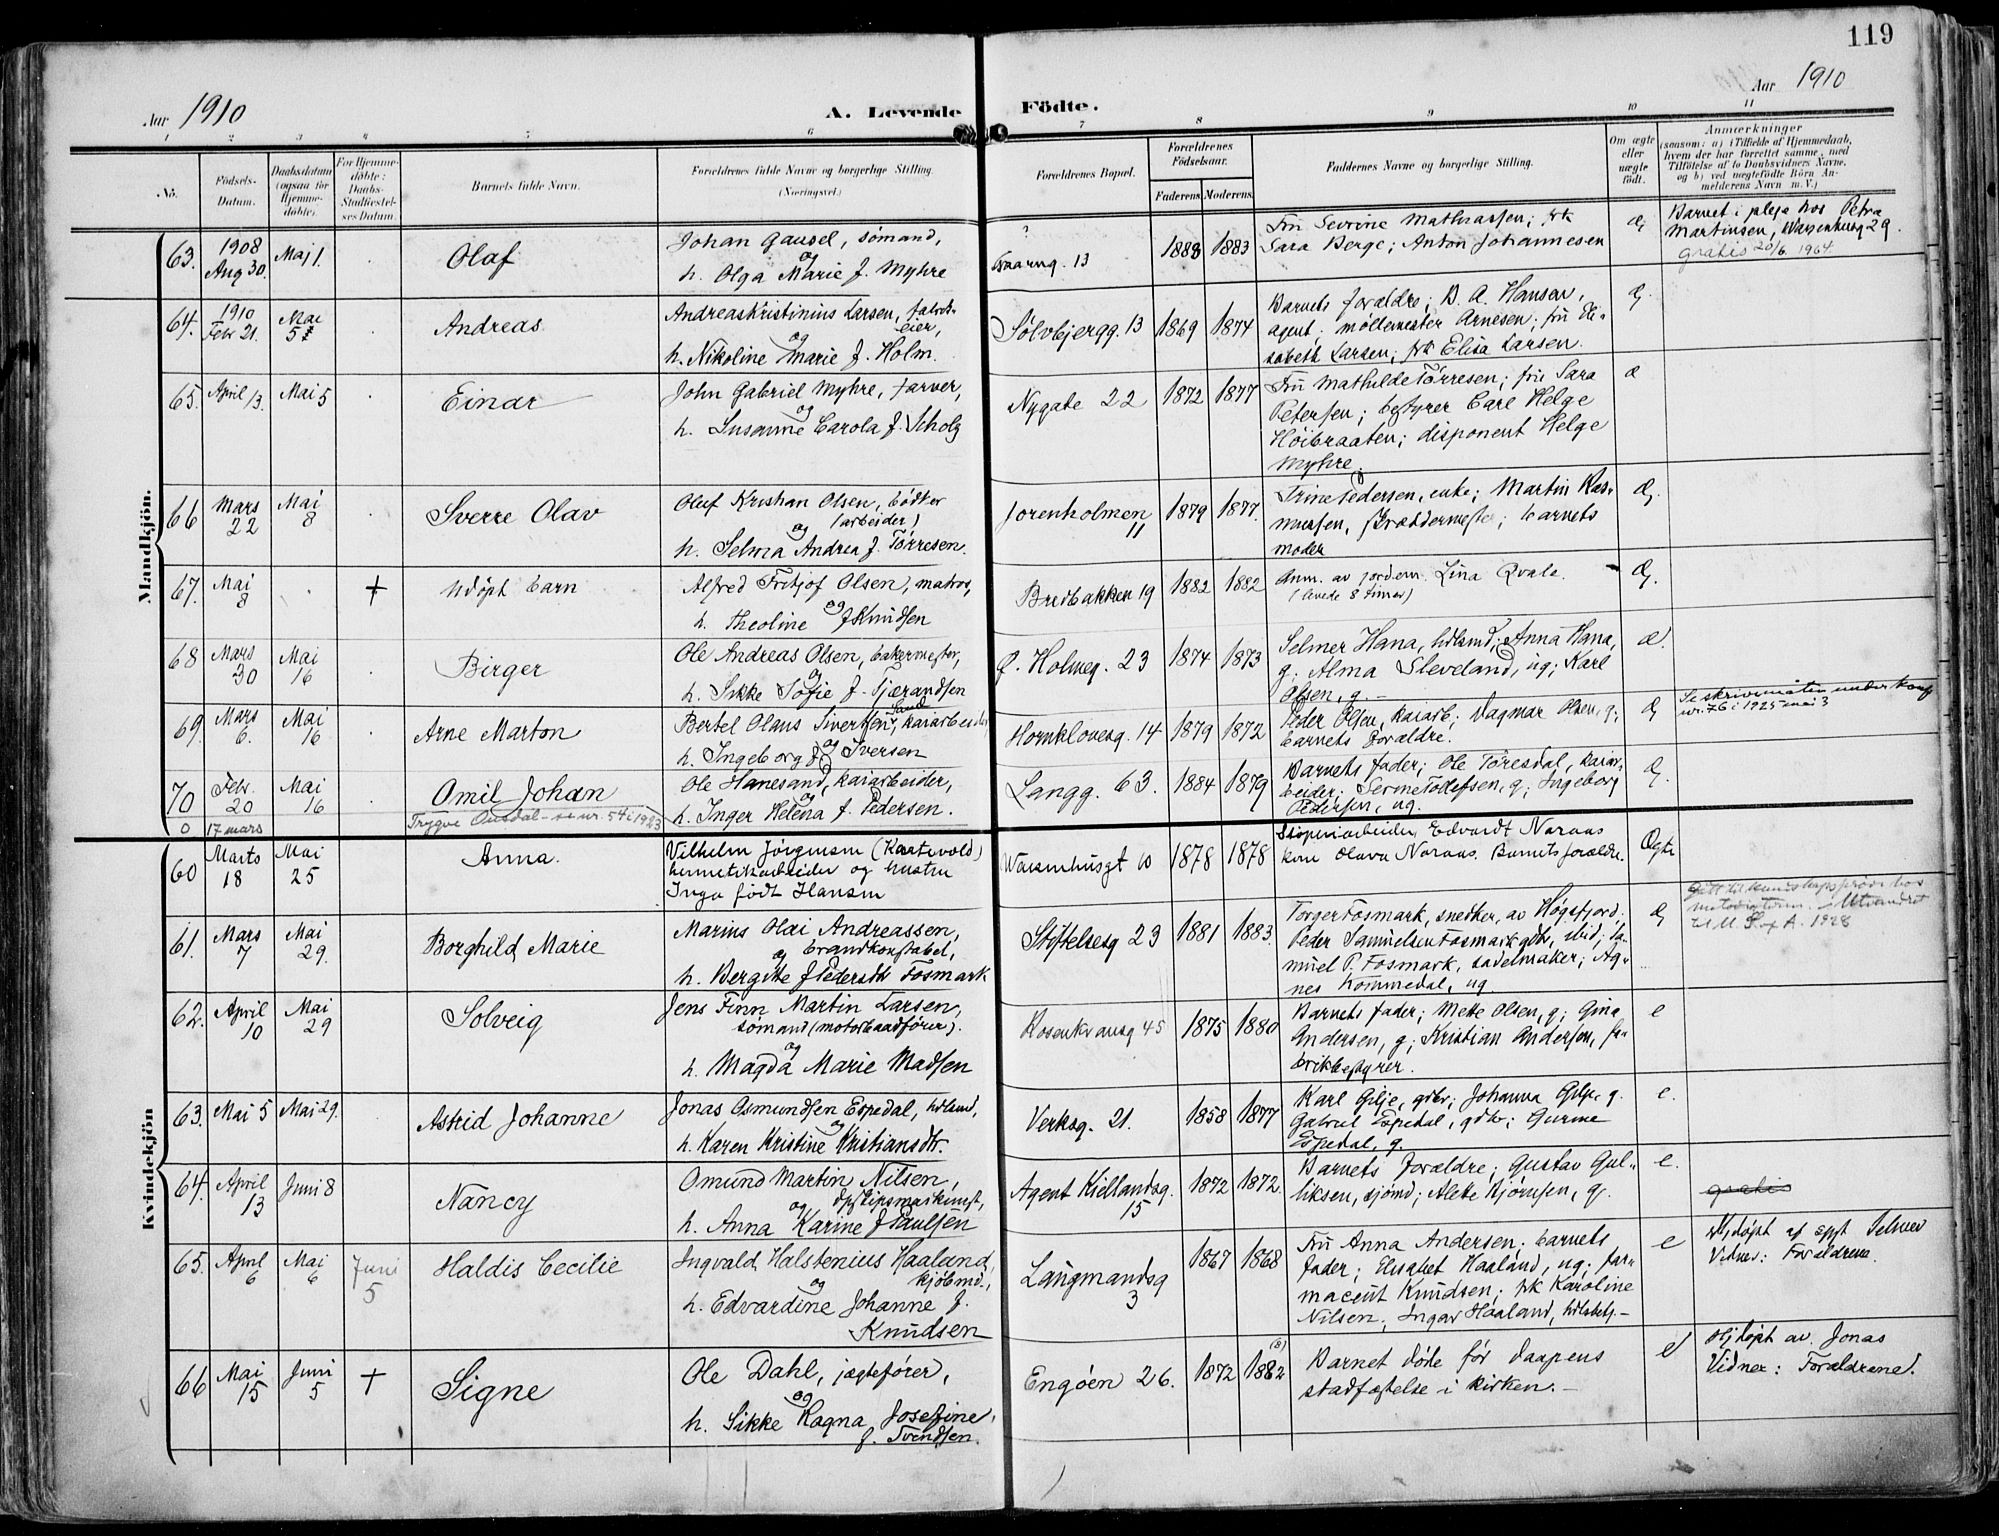 119
Aar 1910
A. Levende Födte.
Aar 1910
1 2 3 4 5 6 7 8 9 10 11
No.
Födsels-Datum.
Daabsdatum (ogsaa for Hjemme-döbte).
For Hjemme-döbte: Daabs-Stadfæstel-ses Datum.
Barnets fulde Navn.
Forældrenes fulde Navne og borgerlige Stilling. (Næringsvei.)
Forældrenes Bopæl.
Forældrenes Födselsaar.
Faderens. Moderens.
Faddernes Navne og borgerlige Stilling.
Om ægte eller uægte födt.
Anmærkninger
(saasom: a) i Tilfælde af Hjemmedaab,
hvem der har forrettet samme, med
Tilföielse af to Daabsvidners Navne,
og b) ved uægtefödte Börn An-
melderens Navn m. V.)
Mandkjön.
63. 1908 Aug 30. Mai 1. Olaf
Johan Gausel, sømand,
og
h. Olga Marie f. Myhre
13 1888 1883
Fru Sevrine Mathiassen; frk
Sara Berge; Anton Johannesen
Æ
Barnet i pleje hos Petra
Martinsen, Waisenhusg 29.
gratis 20/6. 1964
64. 1910 Febr 21. Mai 5 Andreas
Andreas Kristinius Larsen, fabrik-
eier,
og
h. Nikoline Marie f. Holm.
Sølvbjergg. 13 1869 1874
Barnets forældre; B. A. Hansen,
agent; møllemester Arnesen; fru Eli-
sabeth Larsen; frk Elisa Larsen.
Æ.
65. April 13. Mai 5 Einar
John Gabriel Myhre, farver,
og
h. Susanne Carola f. Scholz
Nygade 22 1872 1877
Fru Mathilde Tørresen; fru Sara
Petersen; bestyrer Carl Helge
Høibraaten; disponent Helge
Myhre.
æ
66 Mars 22 Mai 8 Sverre Olav
Oluf Kristian Olsen, bødker
(arbeider)
og
h. Selma Andrea f. Tørresen.
Jorenholmen 11 1879 1877.
Trine Pedersen, enke; Martin Ras-
mussen, skræddermester; barnets
moder
Æ.
67. Mai 8 + Udøpt barn
Alfred Fritjof Olsen, matros,
og
h. Theoline f Knudsen
Bredbakken 19 1882 1882
Anm. av jordem. Lina Qvale.
(levede 8 timer)
Æ.
68 Mars 30 Mai 16 Birger
Ole Andreas Olsen, bakermester,
og
h. Sikke Sofie f. Tjærandsen
Ø. Holmeg. 23 1874 1873
Selmer Hana, hdlsmd; Anna Hana,
g; Alma Sleveland, ug; Karl
Olsen, g.
æ.
69. Mars 6. Mai 16 Arne Marton
Bertel Olaus Sivertsen, kaiarbeider,
Sand
og
h. Ingeborg f. Iversen
Hornklovesg. 14 1879 1872
Peder Olsen, kaiarb; Dagmar Olsen, g;
barnets forældre.
Æ
nr. 76 i 1925 mai 3
70 Febr. 20 Mai 16 Omil Johan
Ole Hanesand, kaiarbeider,
og
h. Inger Helena f. Pedersen.
Langg. 63. 1884 1879
Barnets fader; Ole Tøresdal, kaiar-
beider; Serine Tollefsen, g; Ingeborg
Pedersen, ug.
Æ.
0 17 mars Trygve Ousdal – se nr. 54 i 1923
Kvindekjön
60 Marts 18 Mai 25 Anna.
Vilhelm Jørgensen (Kartevold)
hermetikarbeider og hustru
Inga født Hansen
Waisenhusgt 10 1878 1878
Støperiarbeider Edvardt Noraas
kone Olava Noraas. Barnets forældre.
Ægte
61. Mars 7 Mai 29. Borghild Marie
Marius Olai Andreassen,
og brandkonstabel,
h. Bergitte f Pedersdtr Fosmark
Stiftelsesg 23 1881 1883.
Torger Fosmark, snedker, av Høgsfjord;
Peder Samuelsen Fosmark gdbr, ibid; Sa-
muel P. Fosmark, sadelmaker; Ag-
nes Kommedal, ug
Æ
til U. S. of A. 1928
62. April 10 Mai 29 Solveig
Jens Finn Martin Larsen,
sømand (motorbaadfører).
og
h. Magda Marie Madsen
Rosenkransg 45 1875 1880
Barnets fader; Mette Olsen, g; Gina
Andersen, g; Kristian Andersen, fa-
brikbestyrer.
e
63. Mai 5 Mai 29. Astrid Johanne
Jonas Osmundsen Espedal, hdlsmd,
og
h. Karen Kristine Kristiansdtr.
Verksg. 21. 1858 1877
Karl Gilje, gdbr; Johanna Gilje, g.
Gabriel Espedal, gdbr; Gurine
Espedal, g
e.
64. April 13 Juni 8 Nancy
Omund Martin Nilsen,
dpskipsmaskinist,
og
h. Anna Karine f Paulsen
Agent Kiellandsg. 15 1872 1872.
Barnets forældre; Gustav Gul-
liksen, sjømd; Alette Bjørnsen, g.
e.
gratis
65. April 6 Mai 6 Juni 5 Haldis Cecilie
Ingvald Halstenius Haaland,
kjøbmd.,
og
h. Edvardine Johanne f.
Knudsen
Laugmandsg 3 1867 1868
Fru Anna Andersen; barnets
fader; Elisabet Haaland, ug; far-
maceut Knudsen; frk Karoline
Nilsen, Ingar Haaland, hdlsbetj.
e
Hjdøpt af Selmer
Vidner: Forældrene.
66 Mai 15 Juni 5 + Signe
Ole Dahl, jægtefører,
og
h. Sikke Ragna Josefine
f. Svendsen.
Engøen 26. 1872 1882 (8)
Barnet døde før daapens
stadfæstelse i kirken.
e
Hjdøpt av Jonas
Vidner: Forældrene.